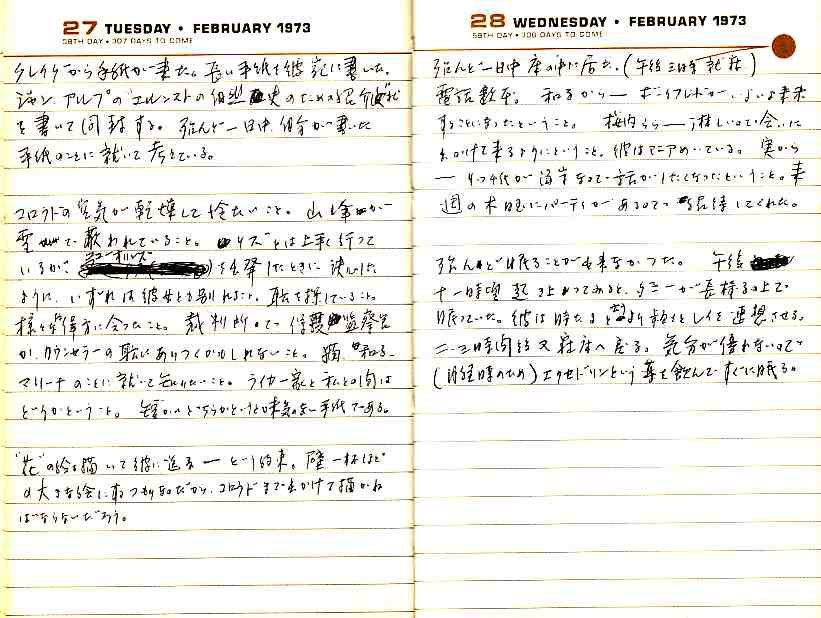 27 TUESDAY • FEBRUARY 1973
58TH DAY • 307 DAYS TO COME
クレイグから手紙が来た。長い手紙を彼宛に書いた。
ジャン アルプのエルンストの
を書いて同封する。殆んど一日中、自分が書いた
手紙のことに就いて考えている。
コロラドの空気が乾燥して冷たいこと。山峰が
雪で蔽われていること。リズとは上手く行って
いるが、を出発したときに決心した
ように、いずれは彼女とも別れること。職を探していること。
様な偉方に会ったこと。裁判所で保護監察官
か、カウンセラーの職にありつくかもしれないこと。猫、和る、
マリーナのことに就いて知りたいこと。ライカー家と私との間は
どうかということ。短かいどちらかというと味気のない手紙である。
"花"の絵を描いて彼に送る — という約束。壁一杯ほど
の大きな絵にするつもりなのだから、コロラドまで出かけて描かね
ばならないだろう。
28 WEDNESDAY • FEBRUARY 1973
59TH DAY • 306 DAYS TO COME
殆んど一日中床の中に居た。(午後三時就床)
電話数本。和るから — ボーイフレンドが、いよいよ来
することになったということ。梅内から — 淋しいので会いに
出かけて来るようにということ。彼はマニアめいている。実から
— 話がしたくなったということ。来
週の木曜にパーティがあるので招待してくれた。
殆んど眠ることが出来なかった。午後
十一時頃起き上ってみると、タミーが長椅子の上で
眠っていた。彼は時たまレイを連想させる。
二、三時間後又寝床へ戻る。気分が優れないので
(月経時のため)エクセドリンという薬を飲んですぐに眠る。